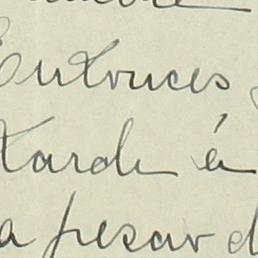 Entonces
tarde á
a pesar d